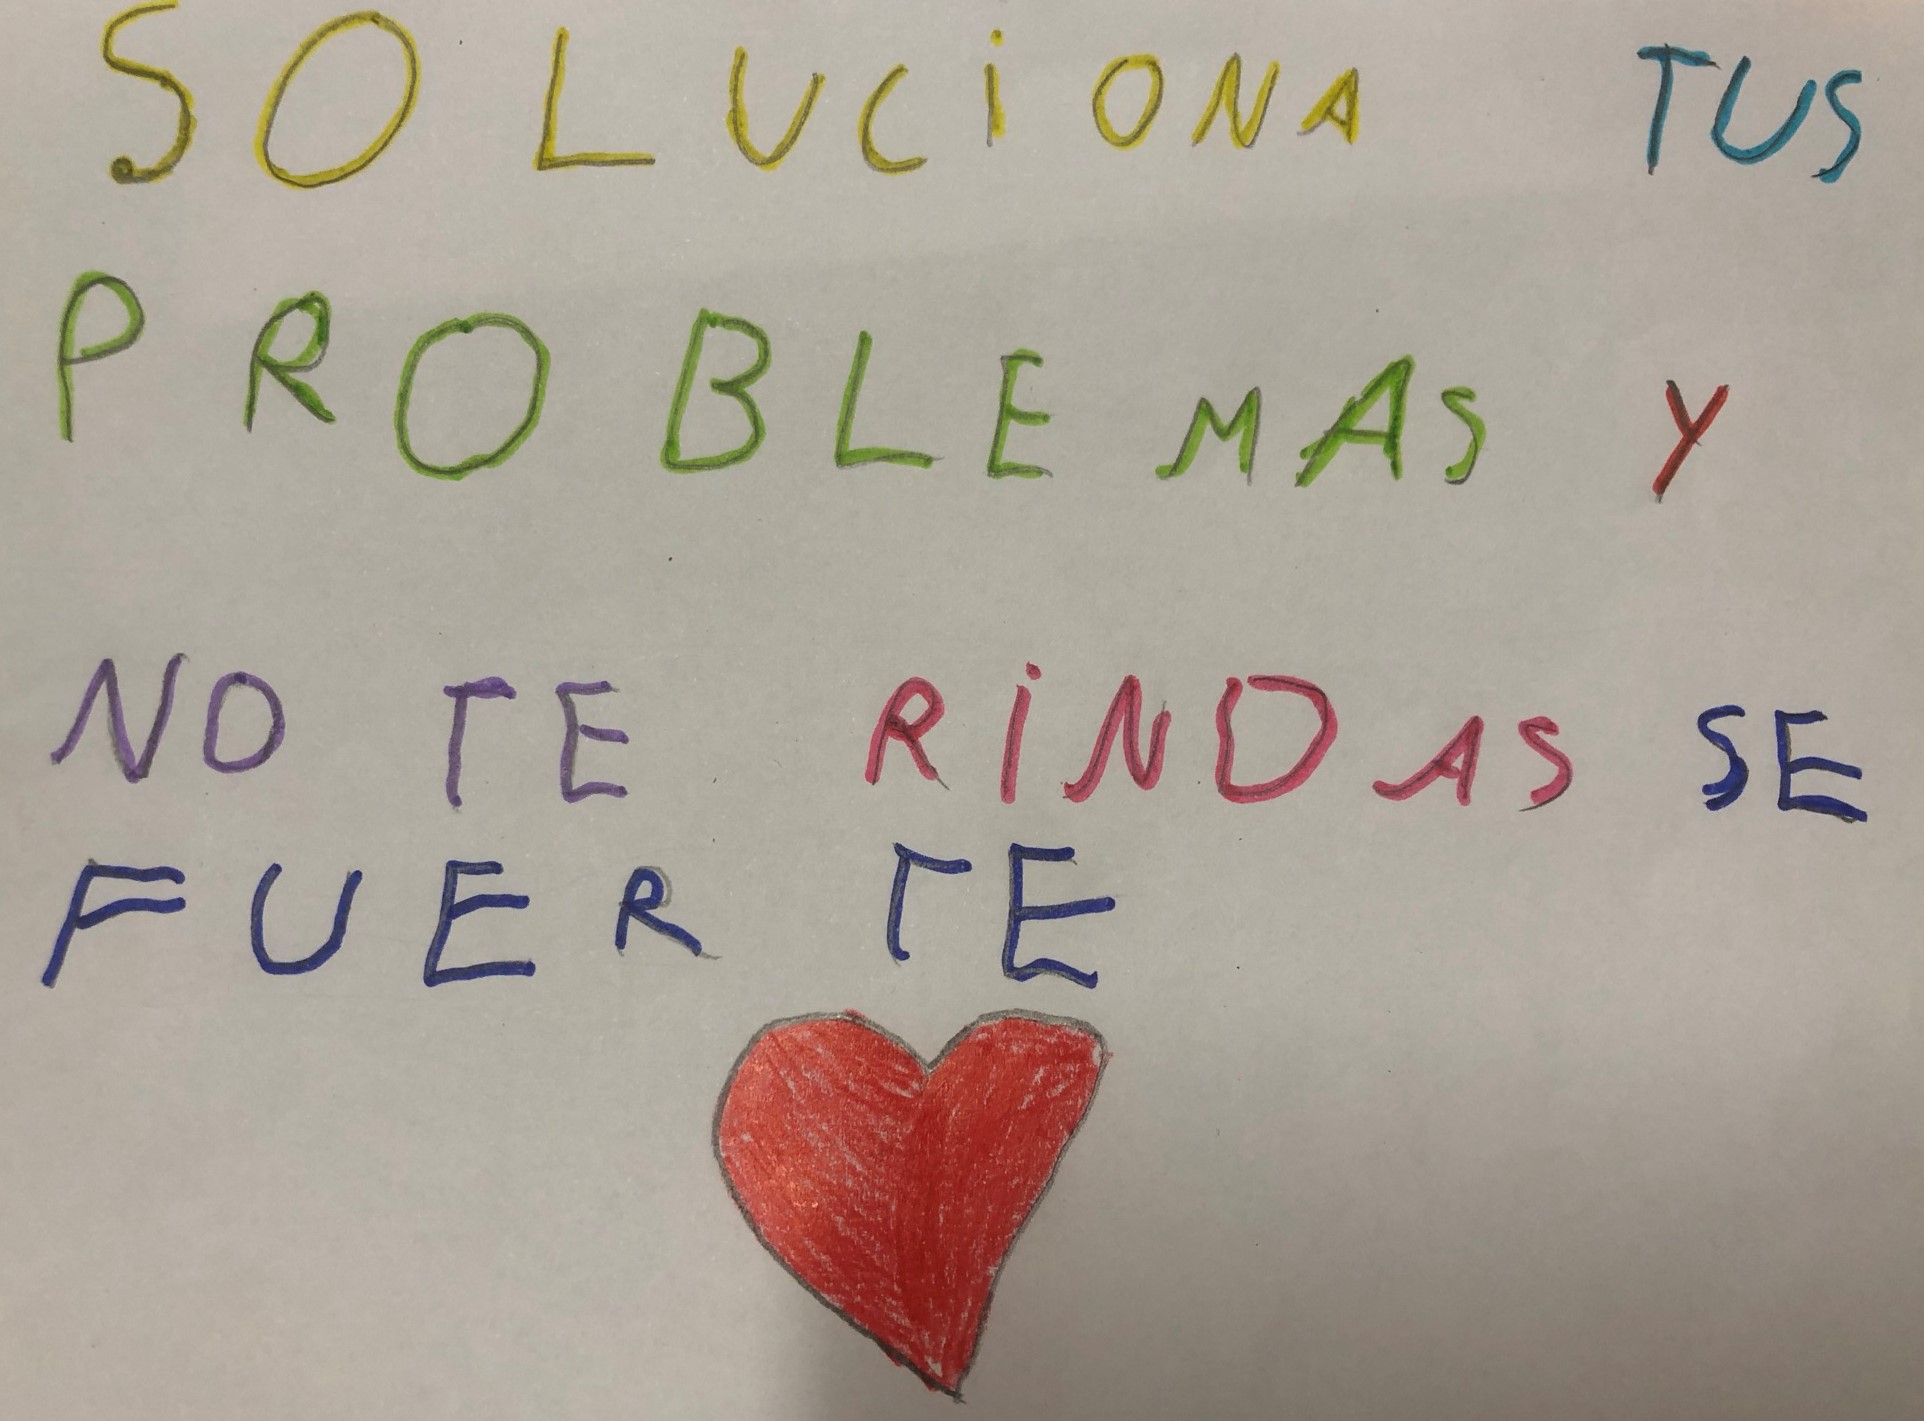 SOLUCiONA TUS
PROBLEMAS Y
NO TE RiNDAS SE
FUERTE